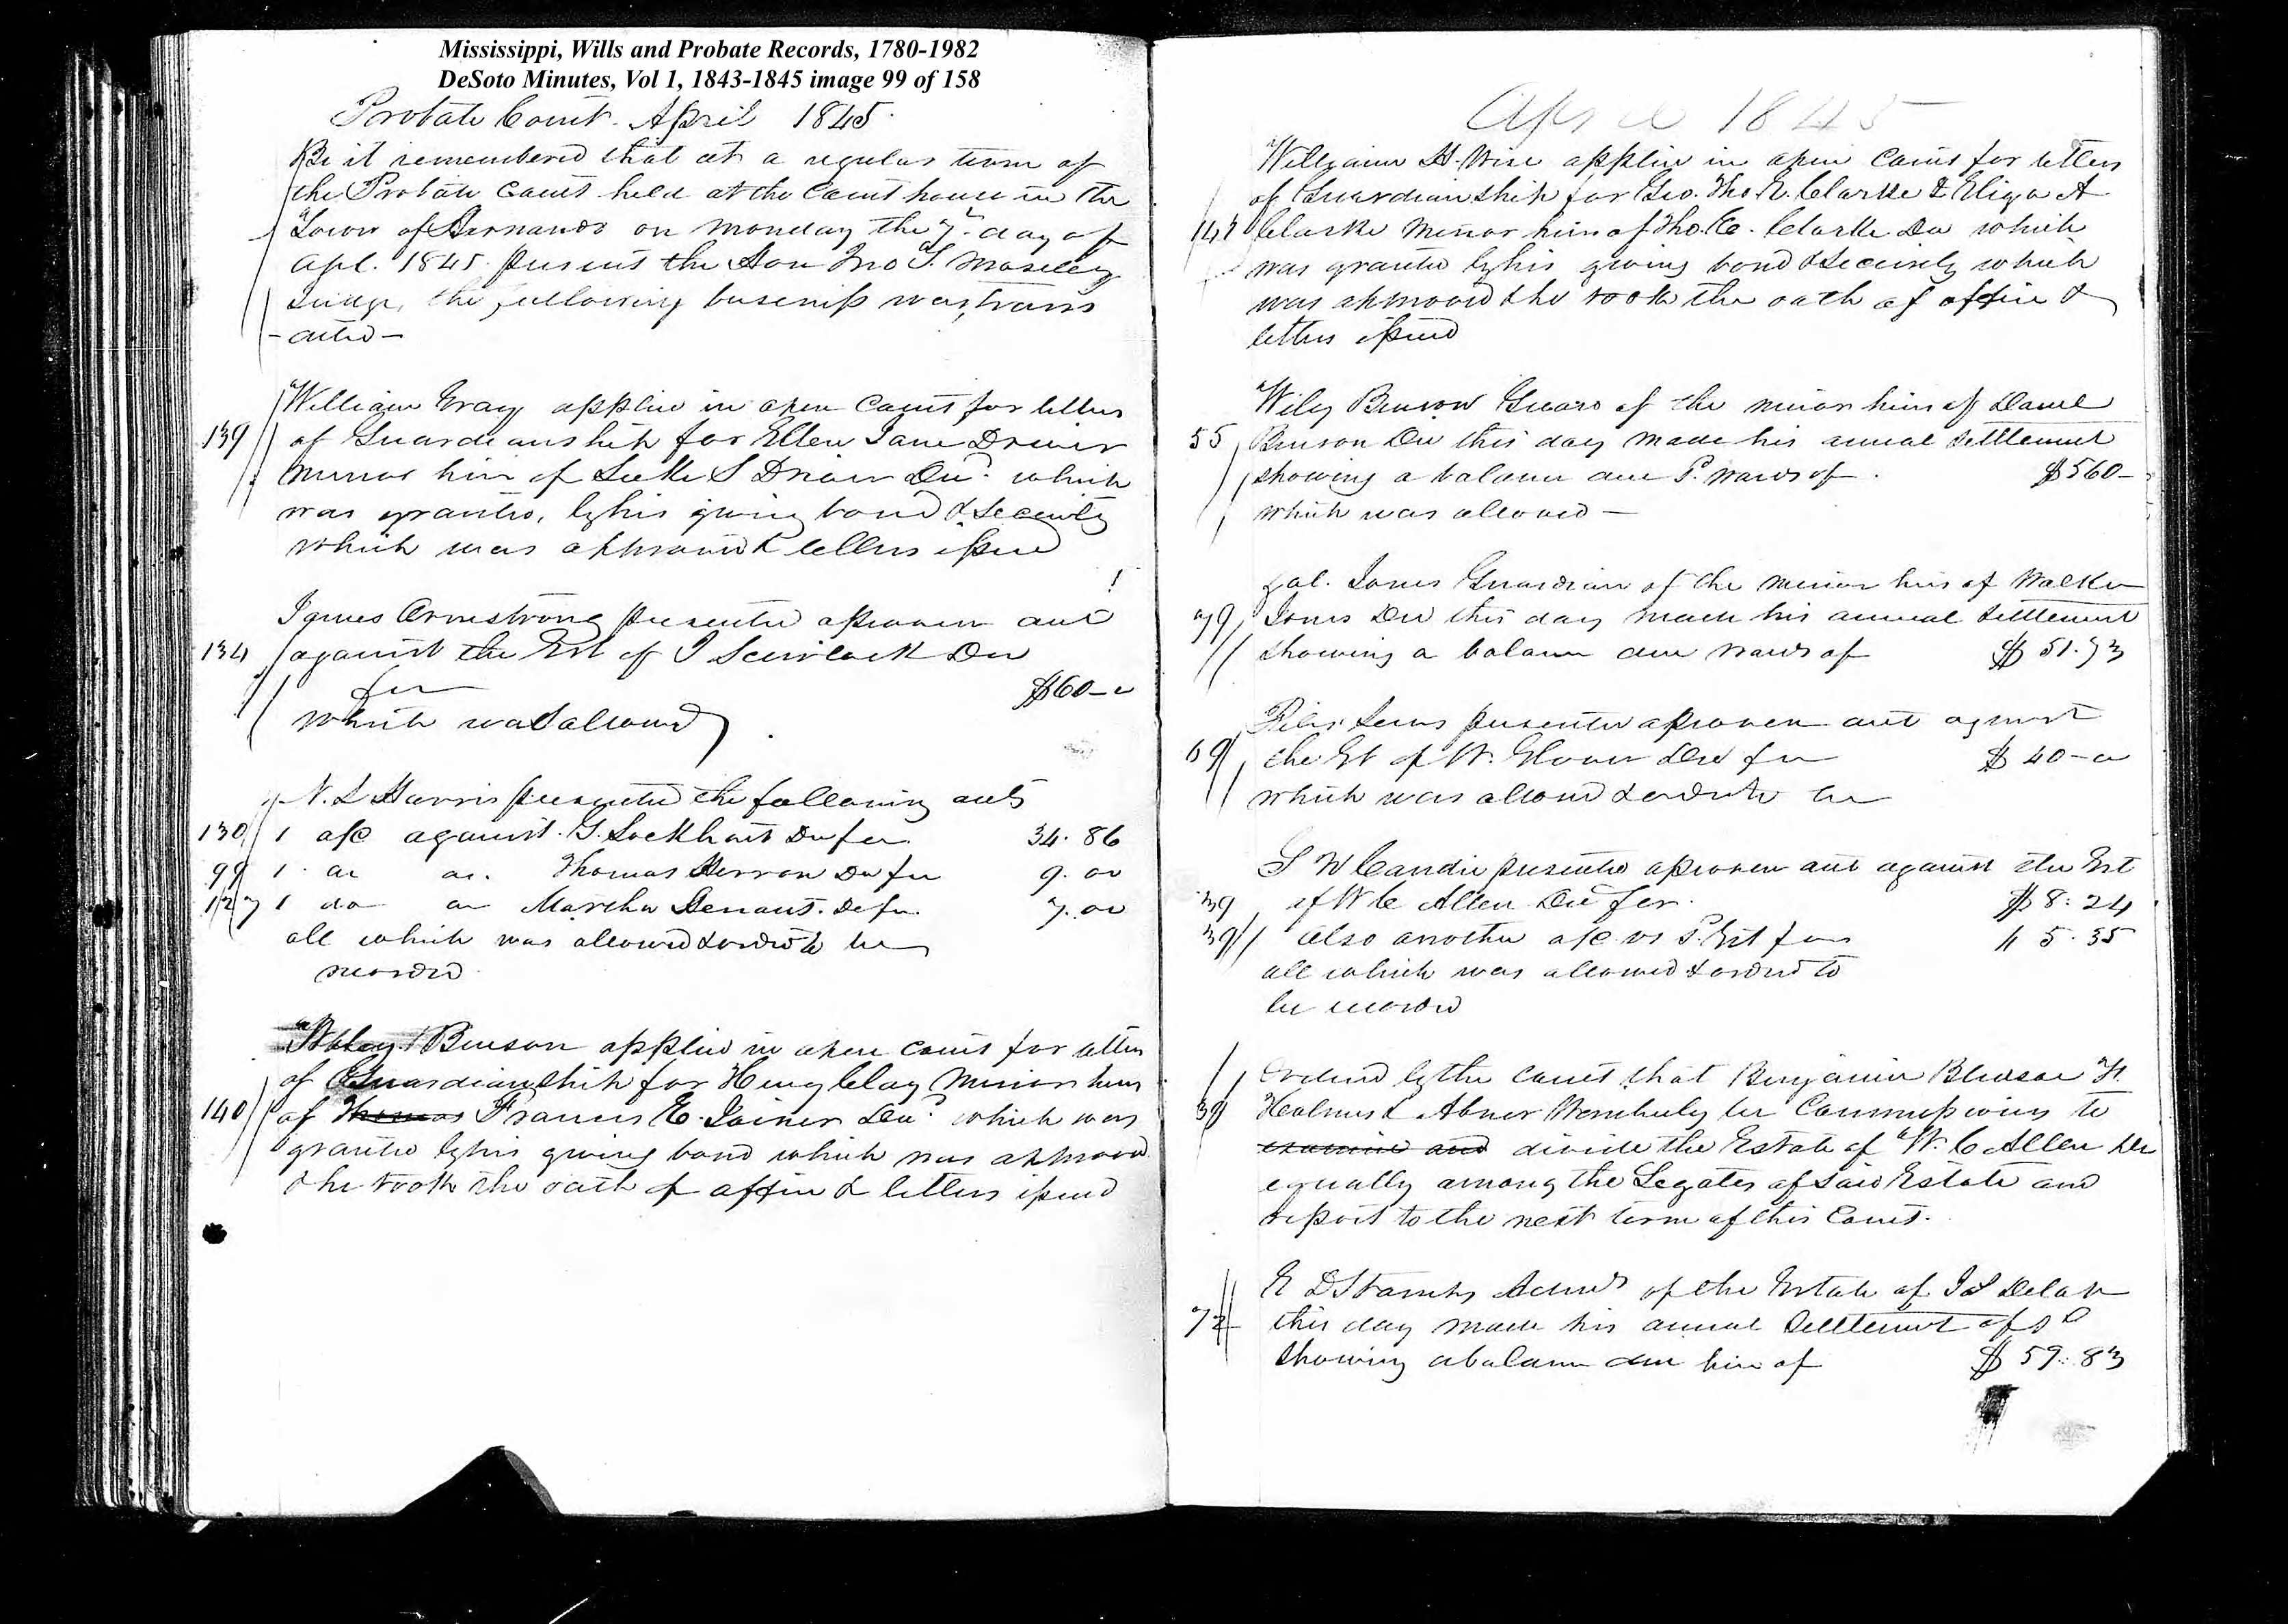 Mississippi, Wills and Probate Records, 1780-1982
DeSoto Minutes, Vol 1, 1843-1845 image 99 of 158
Probate Court April 1845
Be it remembered that at a regular term of
the Probate Court held at the Court house in the
Town of Hernando on monday the 7th day of
Apl. 1845 present the Hon Jno S. Moseley
Judge, the following business was trans
-acted-
William Gray applied in open Court for letters
139 of Guardianship for Ellen Jane Driver
minor heir of S Driver Decd. which
was granted, by his giving bond & Security
which was approved & letters issued
James Armstrong presented a proven acct
134 against the Est of J Decd
for $60-
which was allowed
N. L Harris presented the following accts
130 1 a/c against G. Lockhart Decd for 34.86
99 1 do do. Thomas Herron Decd for 9.00
127 1 do do Martha Decd for 7.00
all which was allowed & ordered to be
recorded
Benson applied in open Court for letters
of Guardianship for Henry Clay minor heir
140 of Thomas Francis E. Joiner Decd. which was
granted by his giving bond which was approved
& he took the oath of office & letters issued
April 1845
William H. Wise applied in open Court for letters
of Guardianship for Geo. Tho. E. Clarke & Eliza A
141 Clarke minor heirs of Tho. C. Clarke Decd which
was granted by his giving bond & Security which
was approved & he took the oath of office &
letters issued
Wiley Benson Guard of the minor heirs of Daniel
55 Benson Decd this day made his annual Settlement
showing a balance due Sd. wards of $560-
which was allowed -
Jones Guardian of the minor heirs of Walker
79 Jones Decd this day made his annual Settlement
showing a balance due wards of $51.73
presented a proven acct against
69 the Est of W. Glover Decd for $40-00
which was allowed & ordered to be
S W presented a proven acct against the Est
39 of W C Allen Decd for $8.24
39 also another a/c vs Sd. Est for " 5.35
all which was allowed & ordered to
be recorded
Ordered by the Court that Benjamin Bledsoe
39 & Abner be Commissioners to
examine and divide the Estate of W. C Allen Decd
equally among the Legatees of said Estate and
report to the next term of this Court.
E D Stamps Admr of the Estate of J S
72 this day made his annual Settlement of sd
showing a balance due him of $59.83